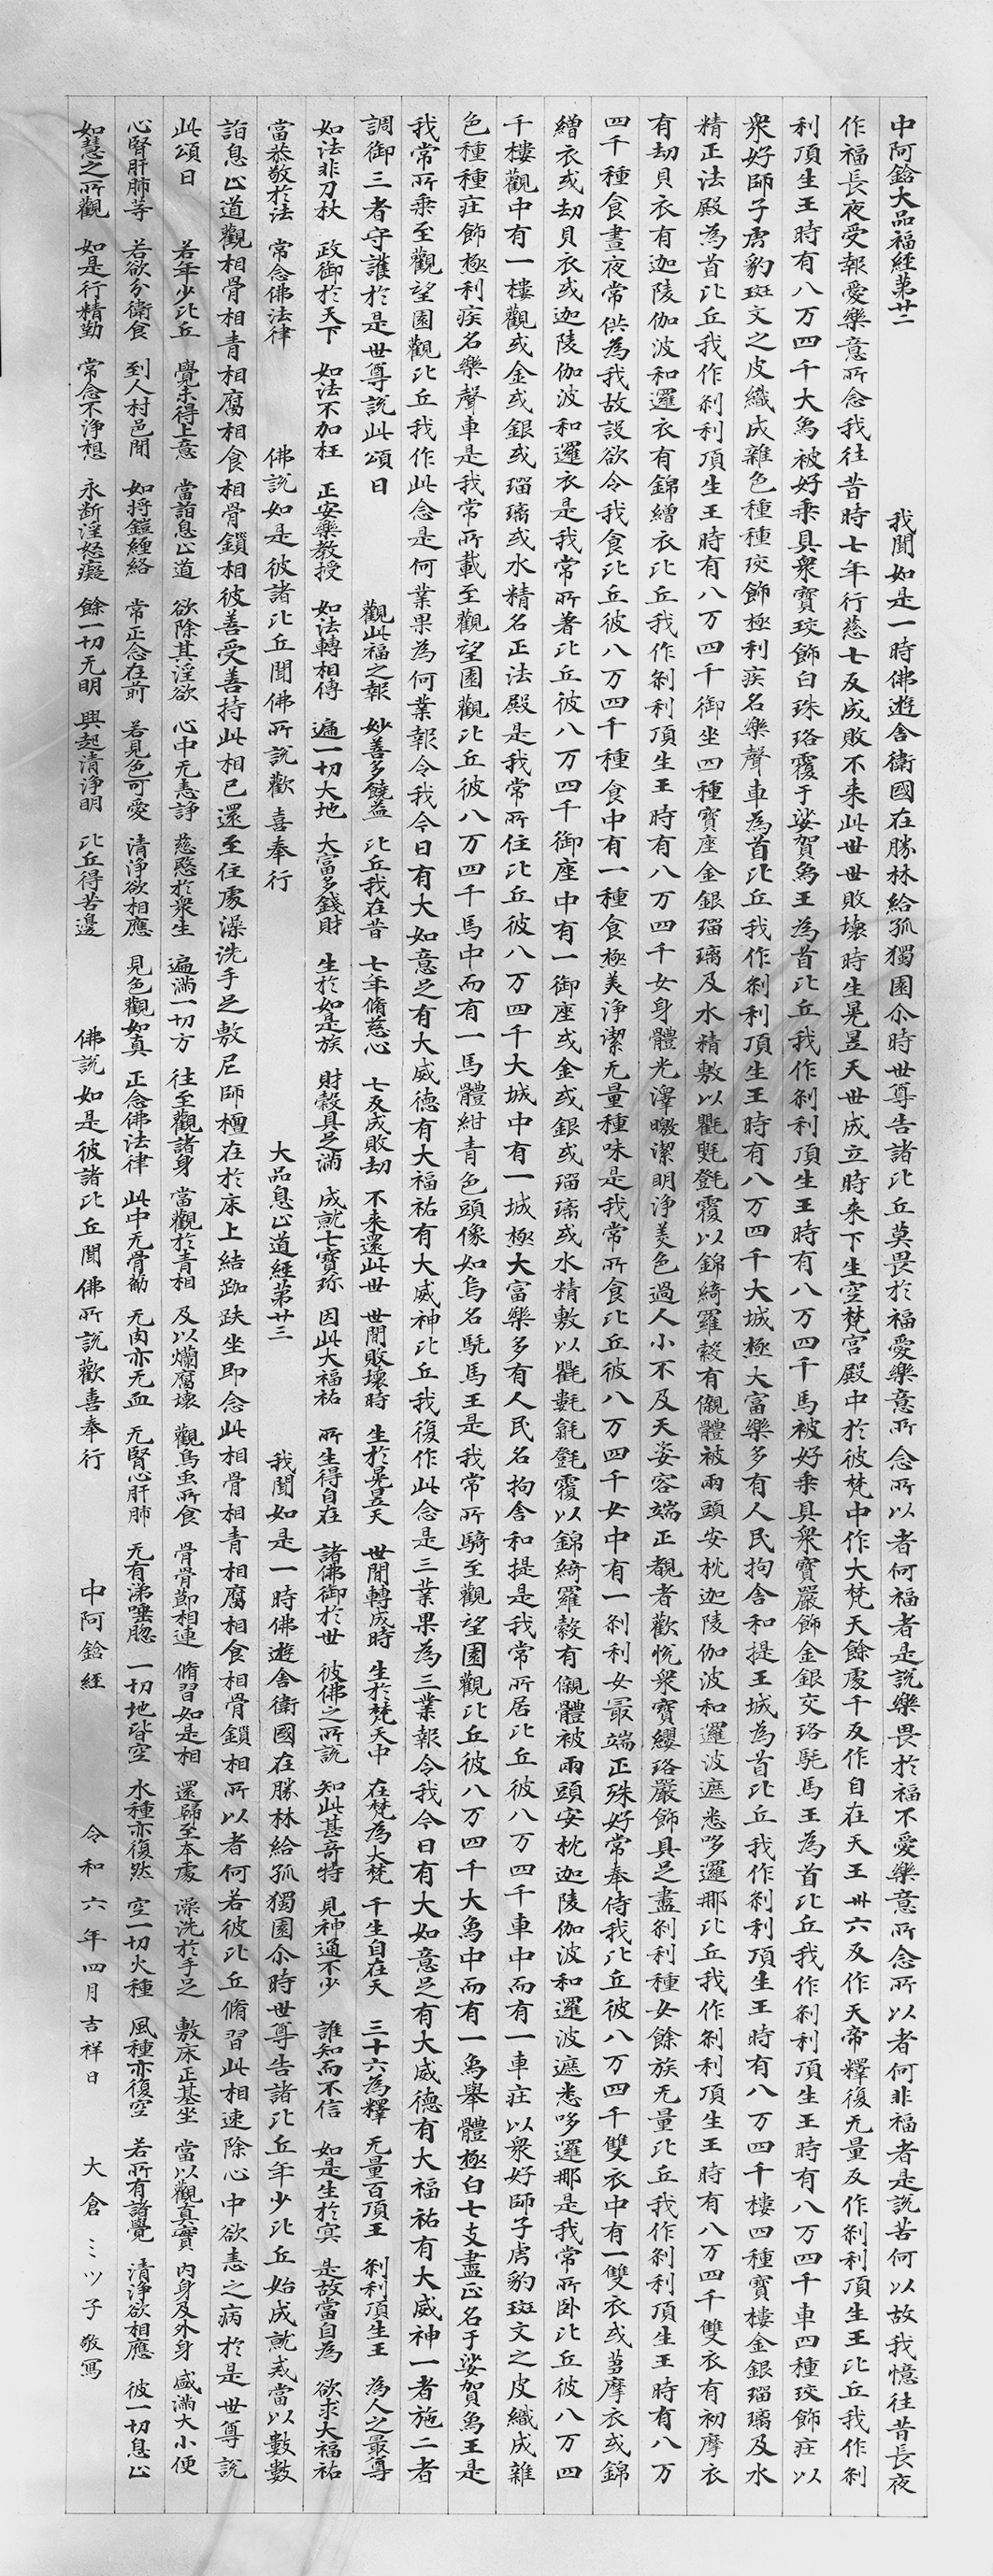 中阿鋡大品福經第廿二　我聞如是一時佛遊舍衛國在勝林給孤獨園尒時世尊告諸比丘莫畏於福愛樂意所念所以者何福者是說樂畏於福不愛樂意所念所以者何非福者是說苦何以故我憶往昔長夜
作福長夜受報愛樂意所念我往昔時七年行慈七反成敗不来此世世敗壞時生晃昱天世成立時来下生空梵宮殿中於彼梵中作大梵天餘處千反作自在天王卅六反作天帝釋復无量反作剎利頂生王比丘我作剎
利頂生王時有八万四千大象被好乗具衆寶珓飾白珠珞覆于娑賀象王為首比丘我作剎利頂生王時有八万四千馬被好乗具衆寶嚴飾金銀交珞駹馬王為首比丘我作剎利頂生王時有八万四千車四種珓飾莊以
衆好師子虎豹斑文之皮織成雜色種種珓飾極利疾名樂聲車為首比丘我作剎利頂生王時有八万四千大城極大富樂多有人民拘舍和提王城為首比丘我作剎利頂生王時有八万四千樓四種寶樓金銀瑠璃及水
精正法殿為首比丘我作剎利頂生王時有八万四千御坐四種寶座金銀瑠璃及水精敷以氍氀毾覆以錦綺羅縠有儭體被兩頭安枕迦陵伽波和邏波遮悉哆邏那比丘我作剎利頂生王時有八万四千雙衣有初摩衣
有劫貝衣有迦陵伽波和邏衣有錦繒衣比丘我作剎利頂生王時有八万四千女身體光澤曒潔明淨美色過人小不及天姿容端正覩者歡悅衆寶纓珞嚴飾具足盡剎利種女餘族无量比丘我作剎利頂生王時有八万
四千種食晝夜常供為我故設欲令我食比丘彼八万四千種食中有一種食極美淨潔无量種味是我常所食比丘彼八万四千女中有一剎利女最端正殊好常奉侍我比丘彼八万四千雙衣中有一雙衣或芻摩衣或錦
繒衣或劫貝衣或迦陵伽波和邏衣是我常所著比丘彼八万四千御座中有一御座或金或銀或瑠璃或水精敷以氍氀毾覆以錦綺羅縠有儭體被兩頭安枕迦陵伽波和邏波遮悉哆邏那是我常所卧比丘彼八万四
千樓觀中有一樓觀或金或銀或瑠璃或水精名正法殿是我常所住比丘彼八万四千大城中有一城極大富樂多有人民名拘舍和提是我常所居比丘彼八万四千車中而有一車莊以衆好師子虎豹斑文之皮織成雜
色種種莊飾極利疾名樂聲車是我常所載至觀望園觀比丘彼八万四千馬中而有一馬體紺青色頭像如烏名駹馬王是我常所騎至觀望園觀比丘彼八万四千大象中而有一象舉體極白七支盡正名于娑賀象王是
我常所乗至觀望園觀比丘我作此念是何業果為何業報令我今日有大如意足有大威德有大福祐有大威神比丘我復作此念是三業果為三業報令我今日有大如意足有大威德有大福祐有大威神一者施二者
調御三者守護於是世尊說此頌曰　觀此福之報　妙善多饒益　比丘我在昔　七年脩慈心　七反成敗劫　不来還此世　世間敗壞時　生於晃昱天　世間轉成時　生於梵天中　在梵為大梵　千生自在天　三十六為釋　无量百頂王　剎利頂生王　為人之最尊
如法非刀杖　政御於天下　如法不加枉　正安樂教授　如法轉相傳　遍一切大地　大富多錢財　生於如是族　財穀具足滿　成就七寶珎　因此大福祐　所生得自在　諸佛御於世　彼佛之所說　知此甚奇特　見神通不少　誰知而不信　如是生於冥　是故當自為　欲求大福祐
當恭敬於法　常念佛法律　佛說如是彼諸比丘聞佛所說歡喜奉行　大品息止道經第廿三　我聞如是一時佛遊舍衛國在勝林給孤獨園尒時世尊告諸比丘年少比丘始成就戒當以數數
詣息止道觀相骨相青相腐相食相骨鎖相彼善受善持此相已還至住處澡洗手足敷尼師檀在於床上結跏趺坐即念此相骨相青相腐相食相骨鎖相所以者何若彼比丘脩習此相速除心中欲恚之病於是世尊說
此頌曰　若年少比丘　覺未得上意　當詣息止道　欲除其淫欲　心中无恚諍　慈愍於衆生　遍滿一切方　往至觀諸身　當觀於青相　及以爛腐壞　觀鳥虫所食　骨骨節相連　脩習如是相　還歸至本處　澡洗於手足　敷床正基坐　當以觀真實　内身及外身　盛滿大小便
心腎肝肺等　若欲分衛食　到人村邑間　如将鎧纏絡　常正念在前　若見色可愛　清淨欲相應　見色觀如真　正念佛法律　此中无骨觔　无肉亦无血　无腎心肝肺　无有涕唾𦞤　一切地皆空　水種亦復然　空一切火種　風種亦復空　若所有諸覺　清淨欲相應　彼一切息止
如慧之所觀　如是行精勤　常念不淨想　永斷淫怒癡　餘一切无明　興起清淨明　比丘得苦邊　佛說如是彼諸比丘聞佛所說歡喜奉行　中阿鋡経　令和六年四月吉祥日　大倉ミツ子敬寫